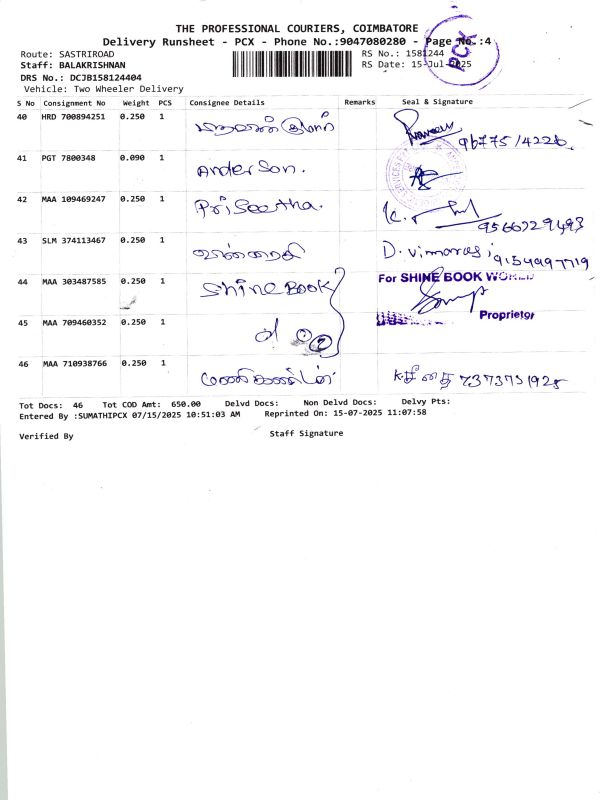 THE PROFESSIONAL COURIERS, COIMBATORE
Delivery Runsheet - PCX - Phone No.:9047080280 - Page No.:4
PCX
Route: SASTRIROAD RS No.: 1581244
Staff: BALAKRISHNAN RS Date: 15-Jul-2025
DRS No.: DCJB158124404
Vehicle: Two Wheeler Delivery
S No Consignment No Weight PCS Consignee Details Remarks Seal & Signature
40 HRD 700894251 0.250 1
41 PGT 7800348 0.090 1 Anderson.
42 MAA 109469247 0.250 1 PriSeetha. 9566729493
43 SLM 374113467 0.250 1 D.
44 MAA 303487585 0.250 1 Shine Book For SHINE BOOK WORLD
45 MAA 709460352 0.250 1 Proprietor
46 MAA 710938766 0.250 1 மணிகண்டன் 7373731925
Tot Docs: 46 Tot COD Amt: 650.00 Delvd Docs: Non Delvd Docs: Delvy Pts:
Entered By :SUMATHIPCX 07/15/2025 10:51:03 AM Reprinted On: 15-07-2025 11:07:58
Verified By Staff Signature